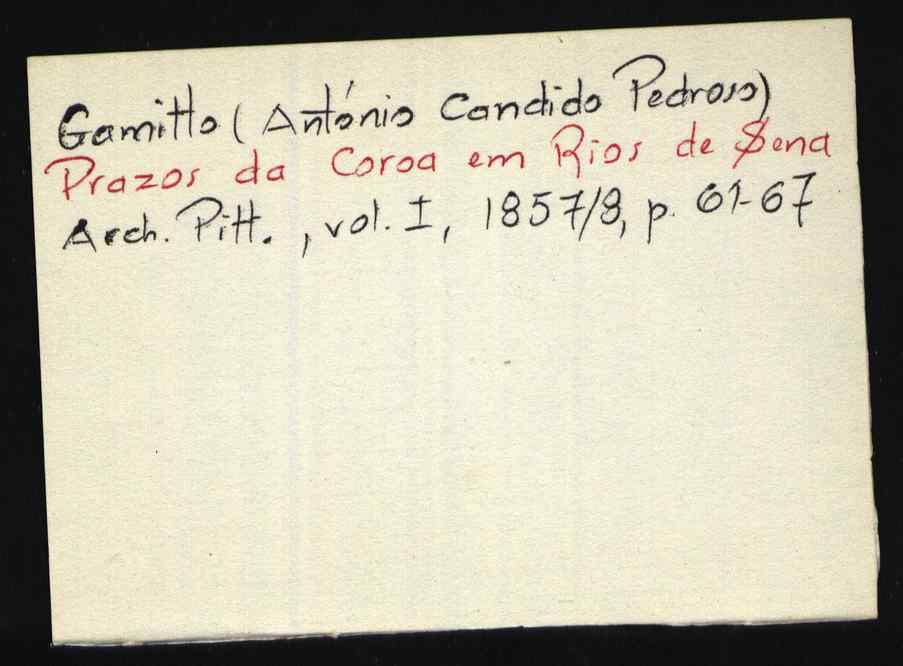 Gamitto (António Candido Pedroso)
Prazos da Coroa em Rios de Sena
Arch. Pitt., vol. I, 1857/8, p. 61-67